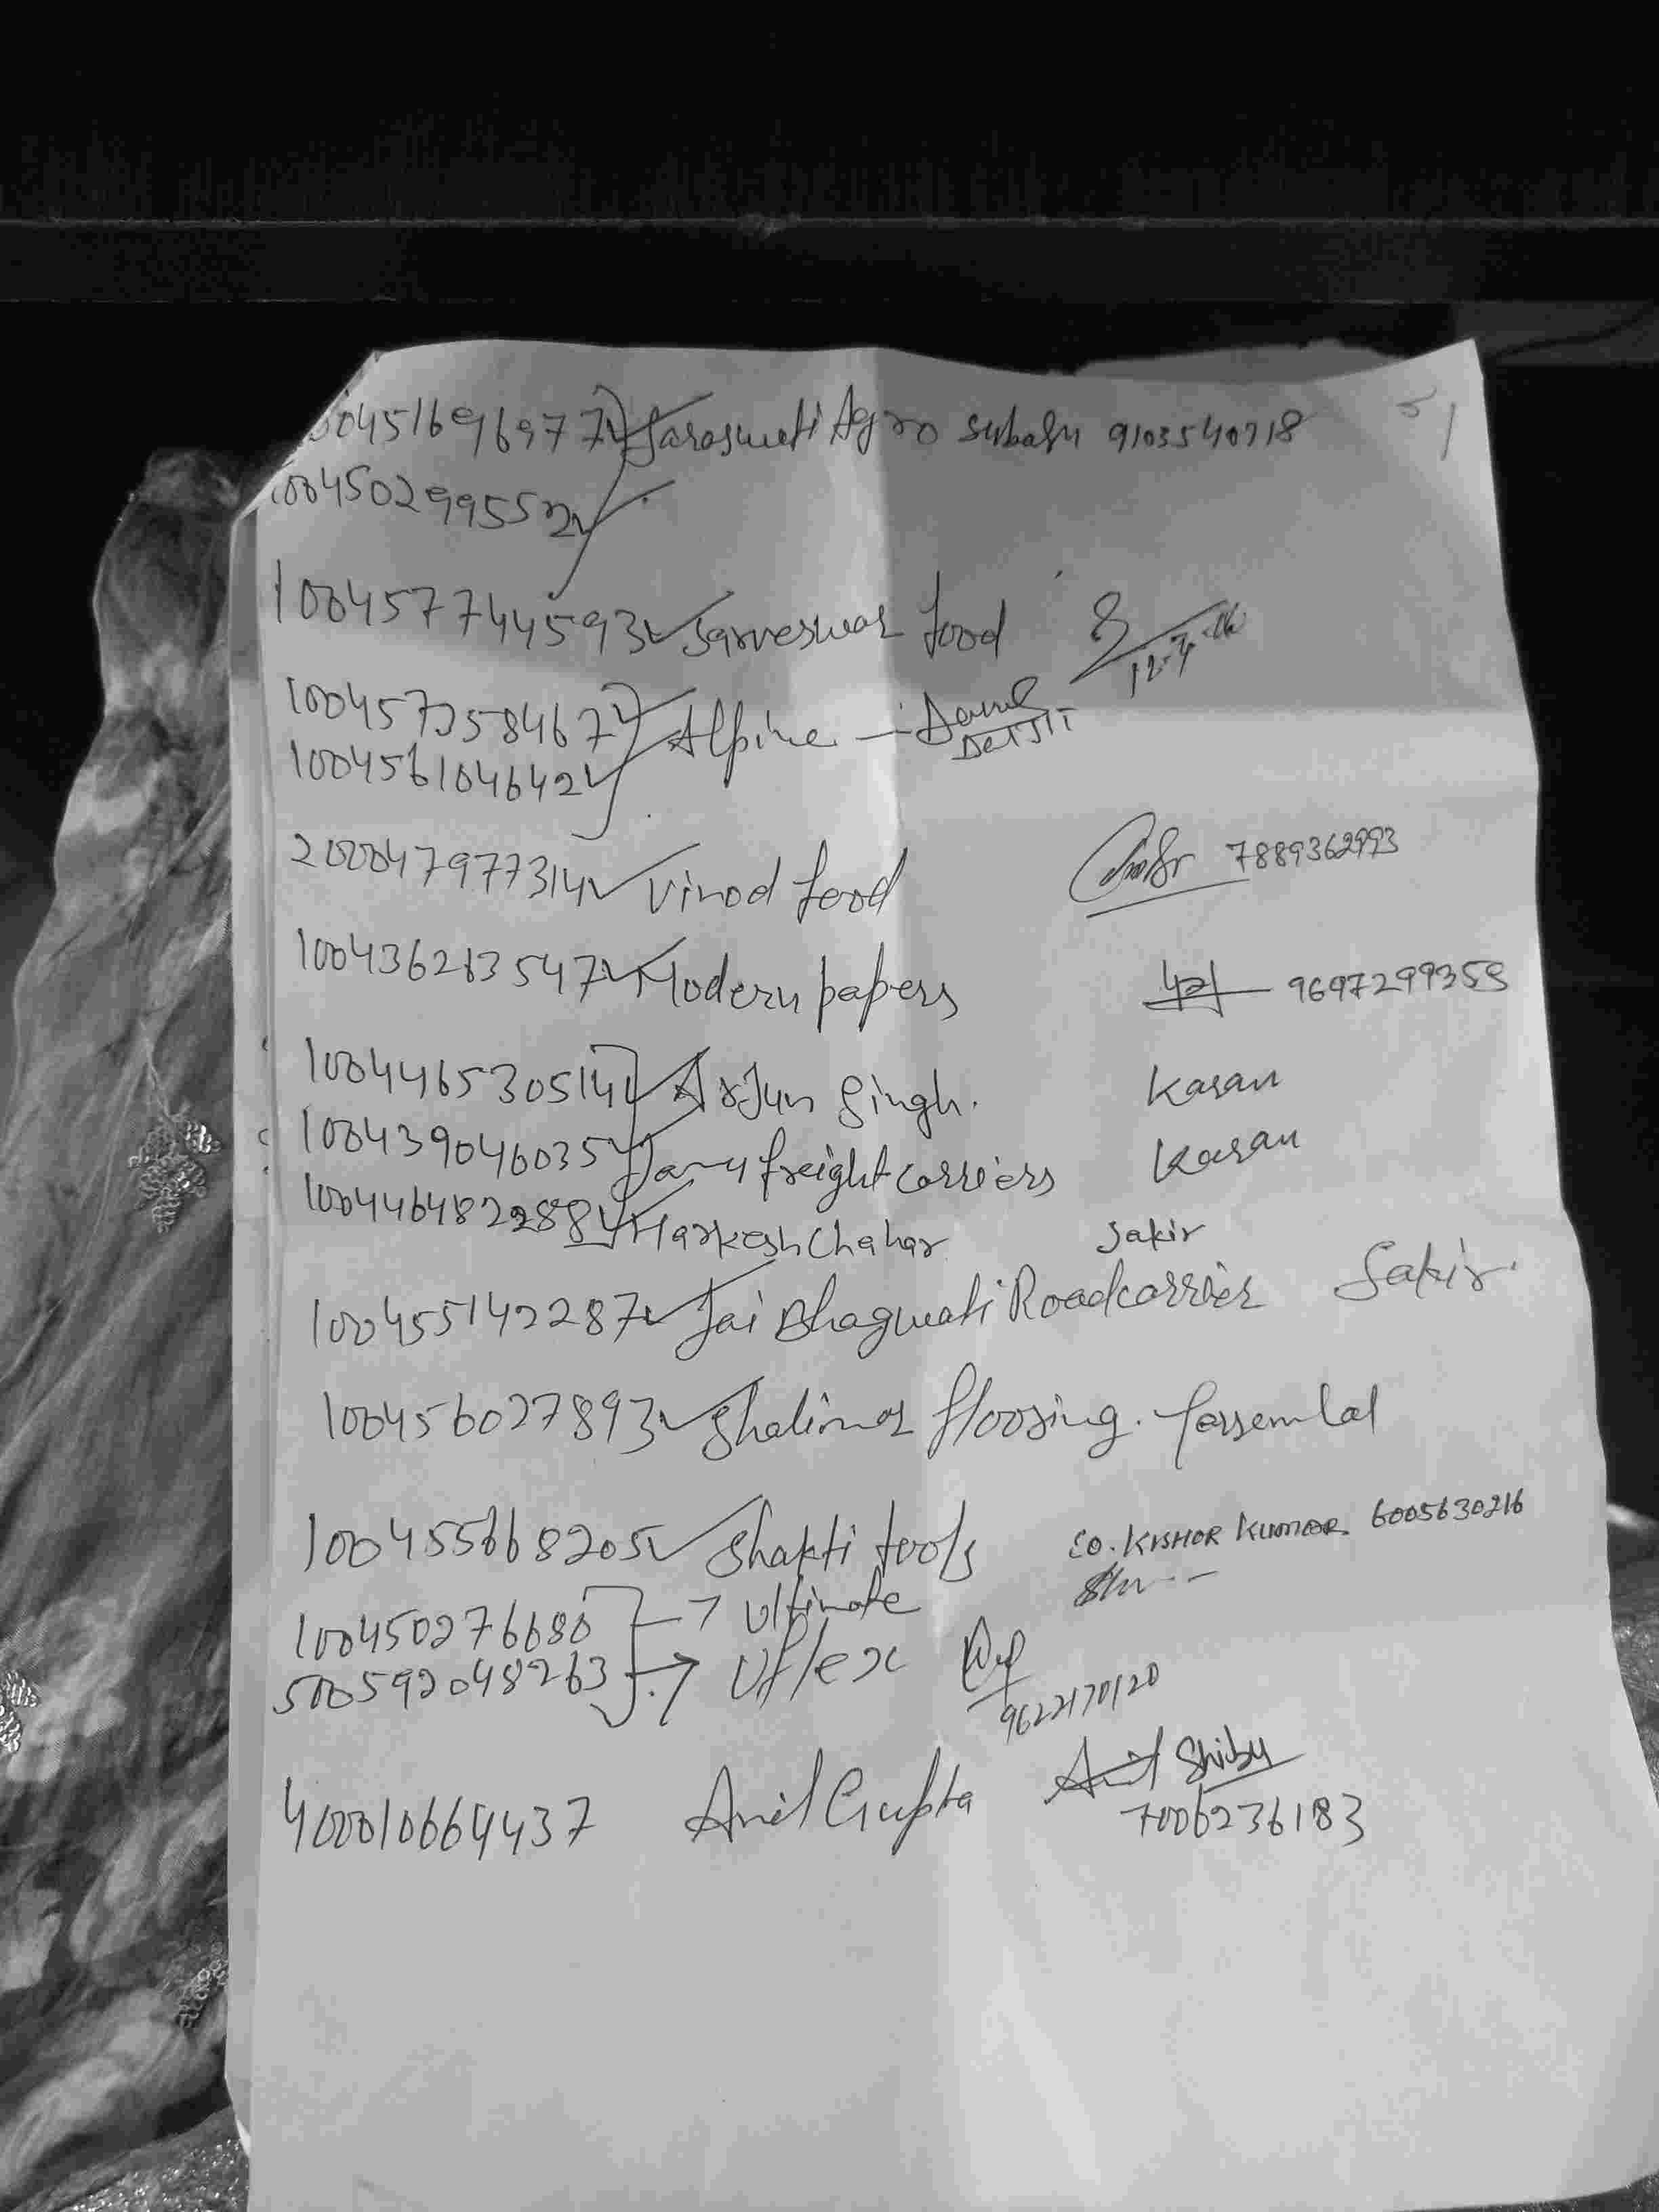 100451696977 Saraswati Agro Subash 9103540718
100450299552
100457744593 Sarveswar food 12-3-
100457358467 Alpine
100456104642
200047977314 Vinod food 7889362993
100436213547 Modern papers 9697299358
100446530514 Arjun Singh. Karan
100439046035 Jamy freight carriers Karan
100446482288 Harkesh Chahar Sakir
100455142287 Jai Bhagwati Roadcarrier Sakir.
100456027893 Shalimar flooring.
100455668205 Shakti tools KISHOR KUMAR 6005630216
100450276680 → Ultimate
500592048263 → Uflex
9622170120
400010664437 Anil Gupta Shibu
7006236183